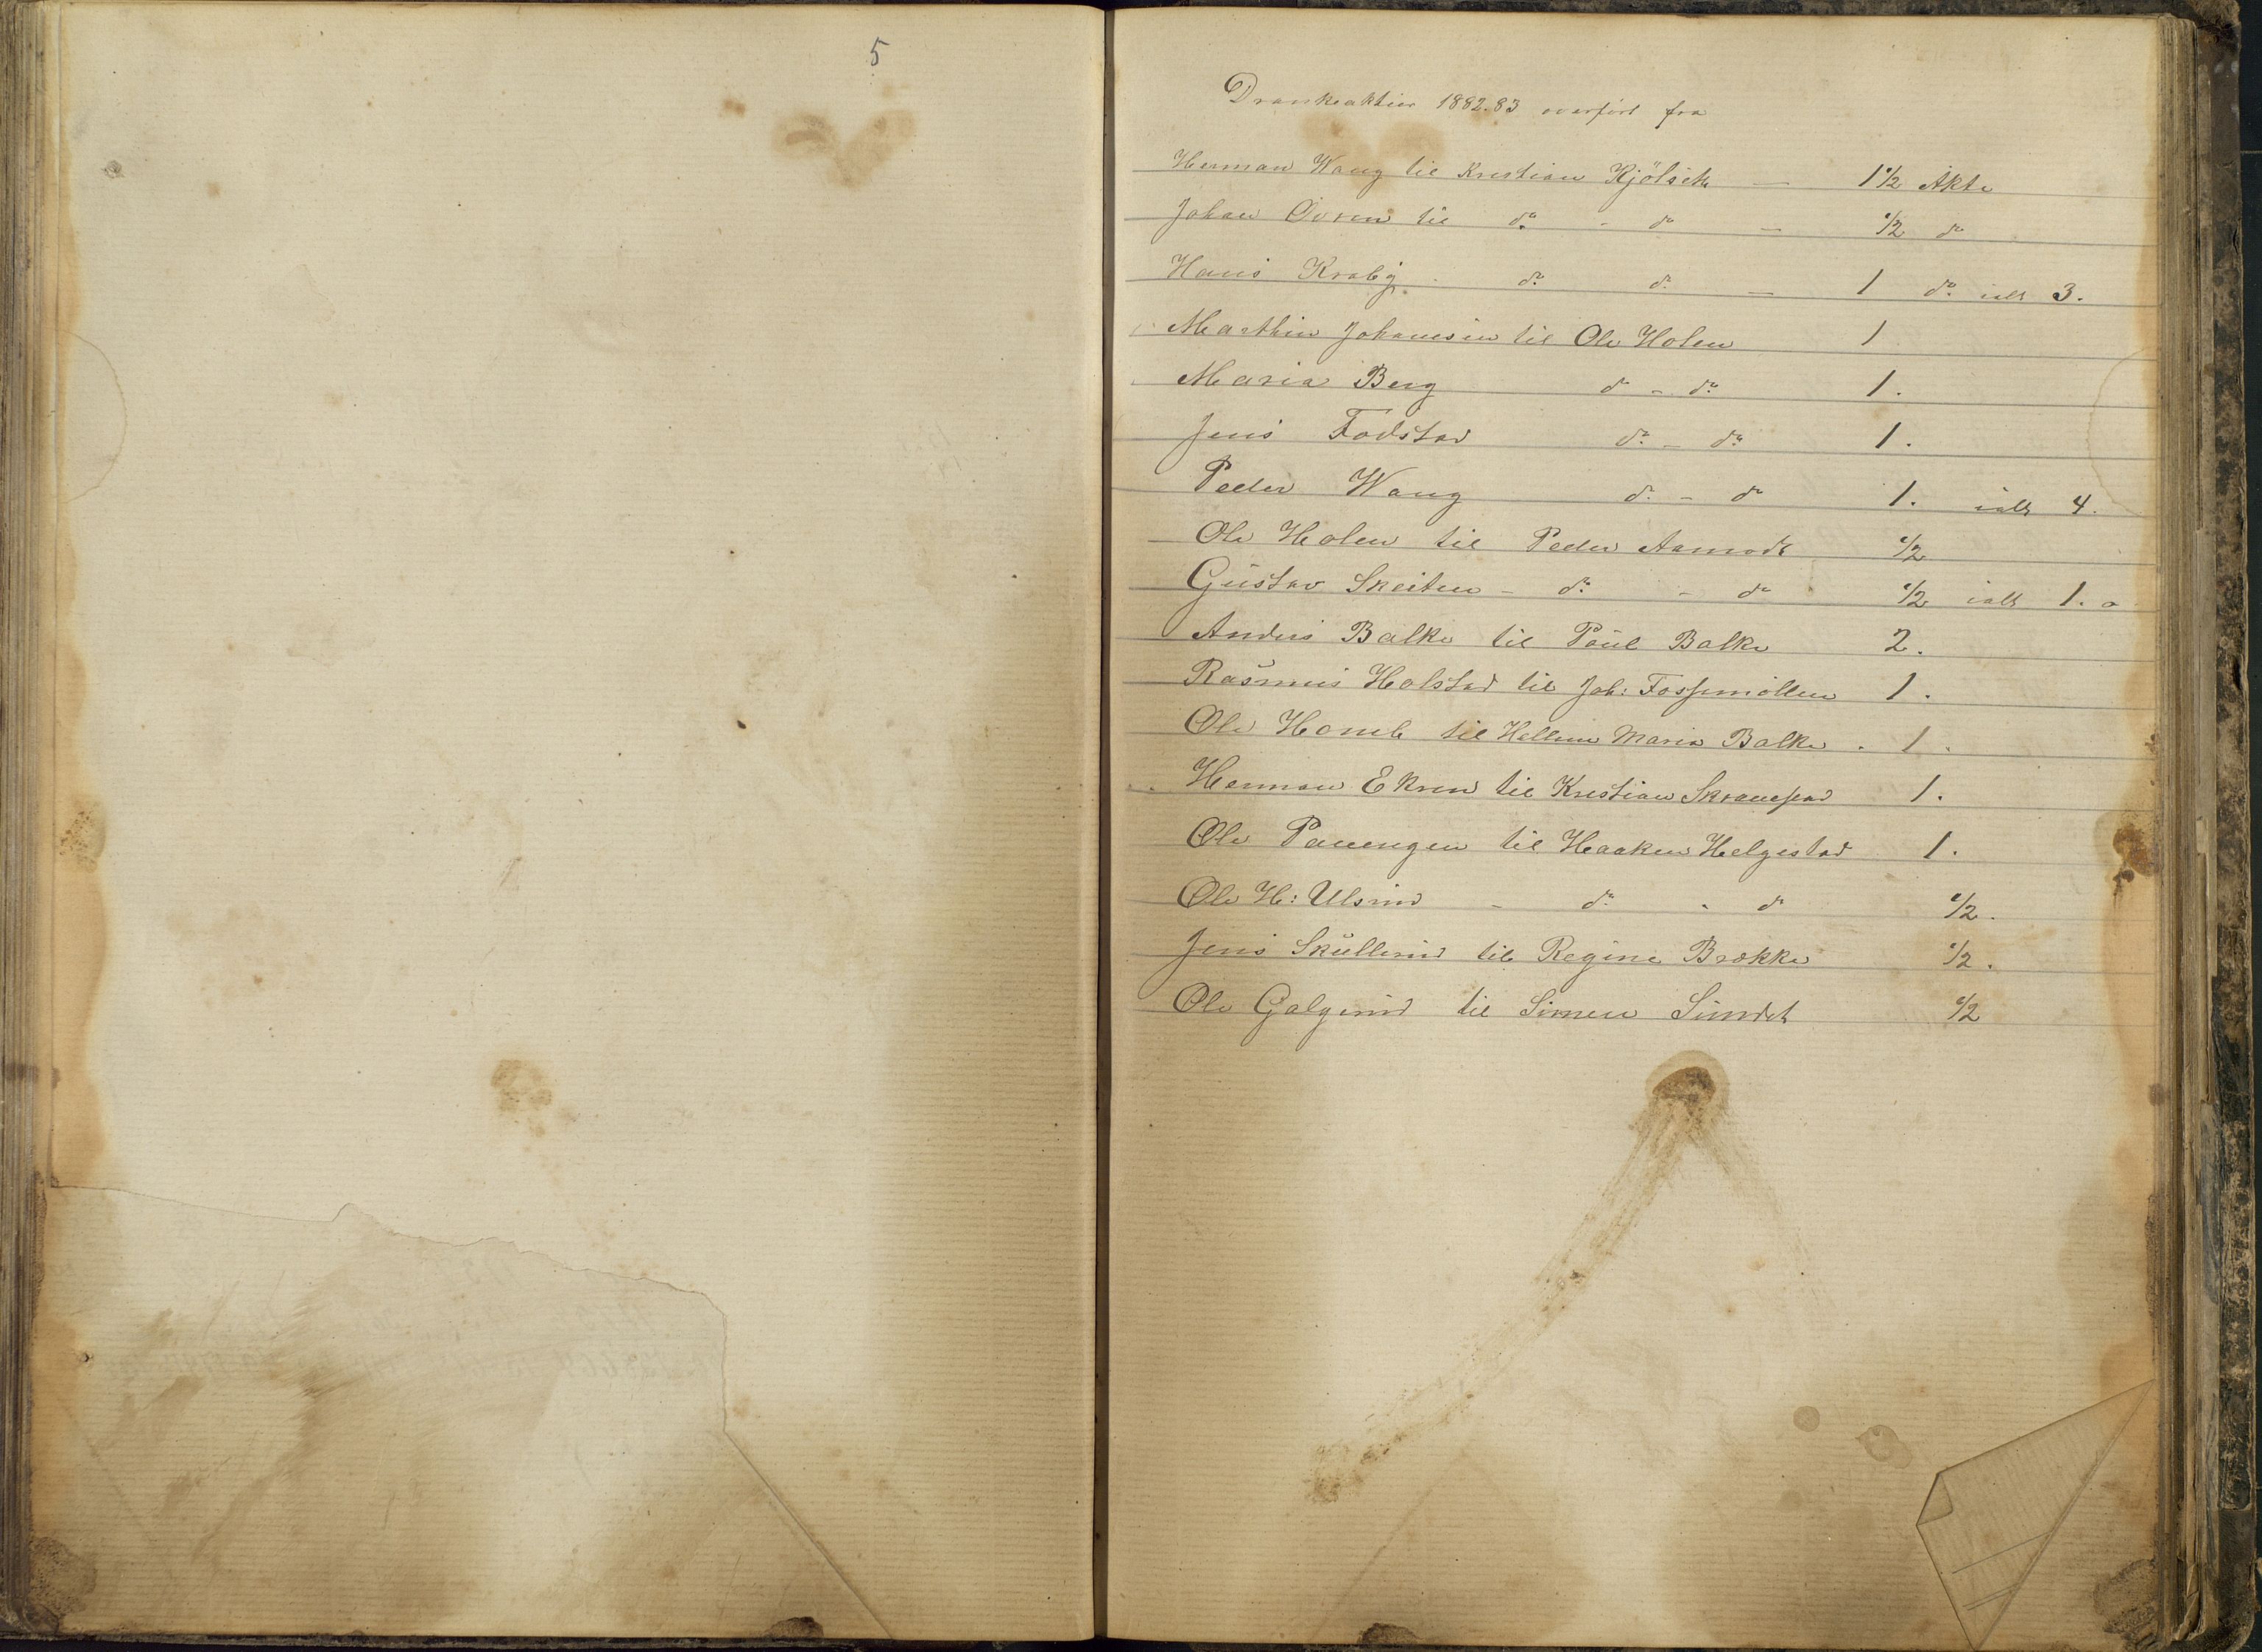 5
Drankeaktier 1882-83 overført fra
Herman Wang til Kristian Kjölseth — 1 1/2 Akte
Johan Övren til do - do — 1/2 do
Hans Kraby - do do — 1 do ialt 3.
Marthin Johannesen til Ole Holen 1
Maria Berg do - do 1.
Jens Fodstad do - do 1.
Peder Wang do - do 1. ialt 4.
Ole Holen til Peder Aamodt 1/2
Gustav Skeiten - do - do 1/2 ialt 1.
Anders Balke til Paul Balke 2.
Rasmus Holstad til Joh: Fossemöllen 1.
Ole Homb til Maria Balke. 1.
Herman Ekren til Kristian 1.
Ole til Haaken Helgestad 1.
Ole H: Ulsrud - do - do 1/2.
Jens Skullerud til Regine Brække 1/2.
Ole Galgerud til Simen Sundet 1/2